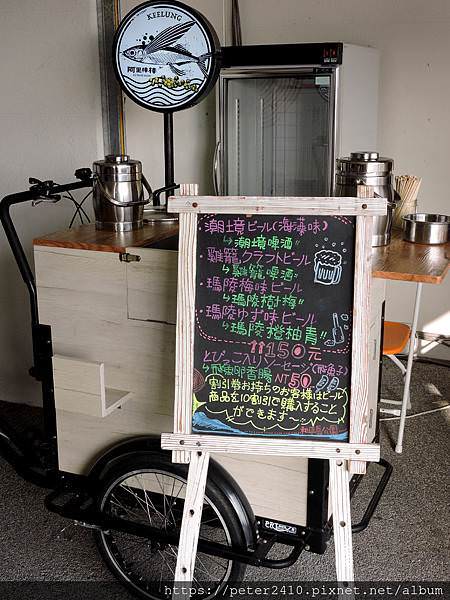 KEELUNG
阿里棒棒
潮境ビール(海藻味)
↳潮境啤酒"
雞籠クラフトビール
↳雞籠啤酒"
瑪陵梅味ビール
↳瑪陵樹梅"
瑪陵ゆず味ビール
↳瑪陵橙柚青"
↑↑150元
とびっこ入りソーセージ(飛魚子)
香腸 NT50
割引券お持ちのお客様はビール
商品を10割引で購入すること
ができます~
和平島公園
http://peter2410.pixnet.net/album